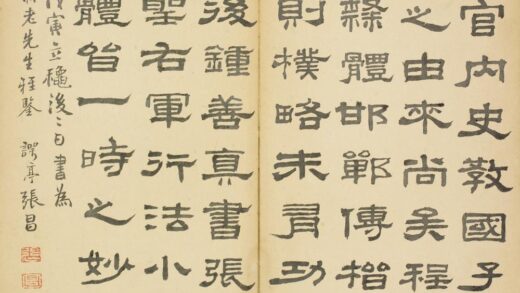 官內史教國子
之由來尚矣程
隸體邯鄲傳楷
則樸略未有功
後鍾善真書張
聖右軍行法小
體皆一時之妙
戊寅立穐後二日書為
老先生雅鑒 亭張昌